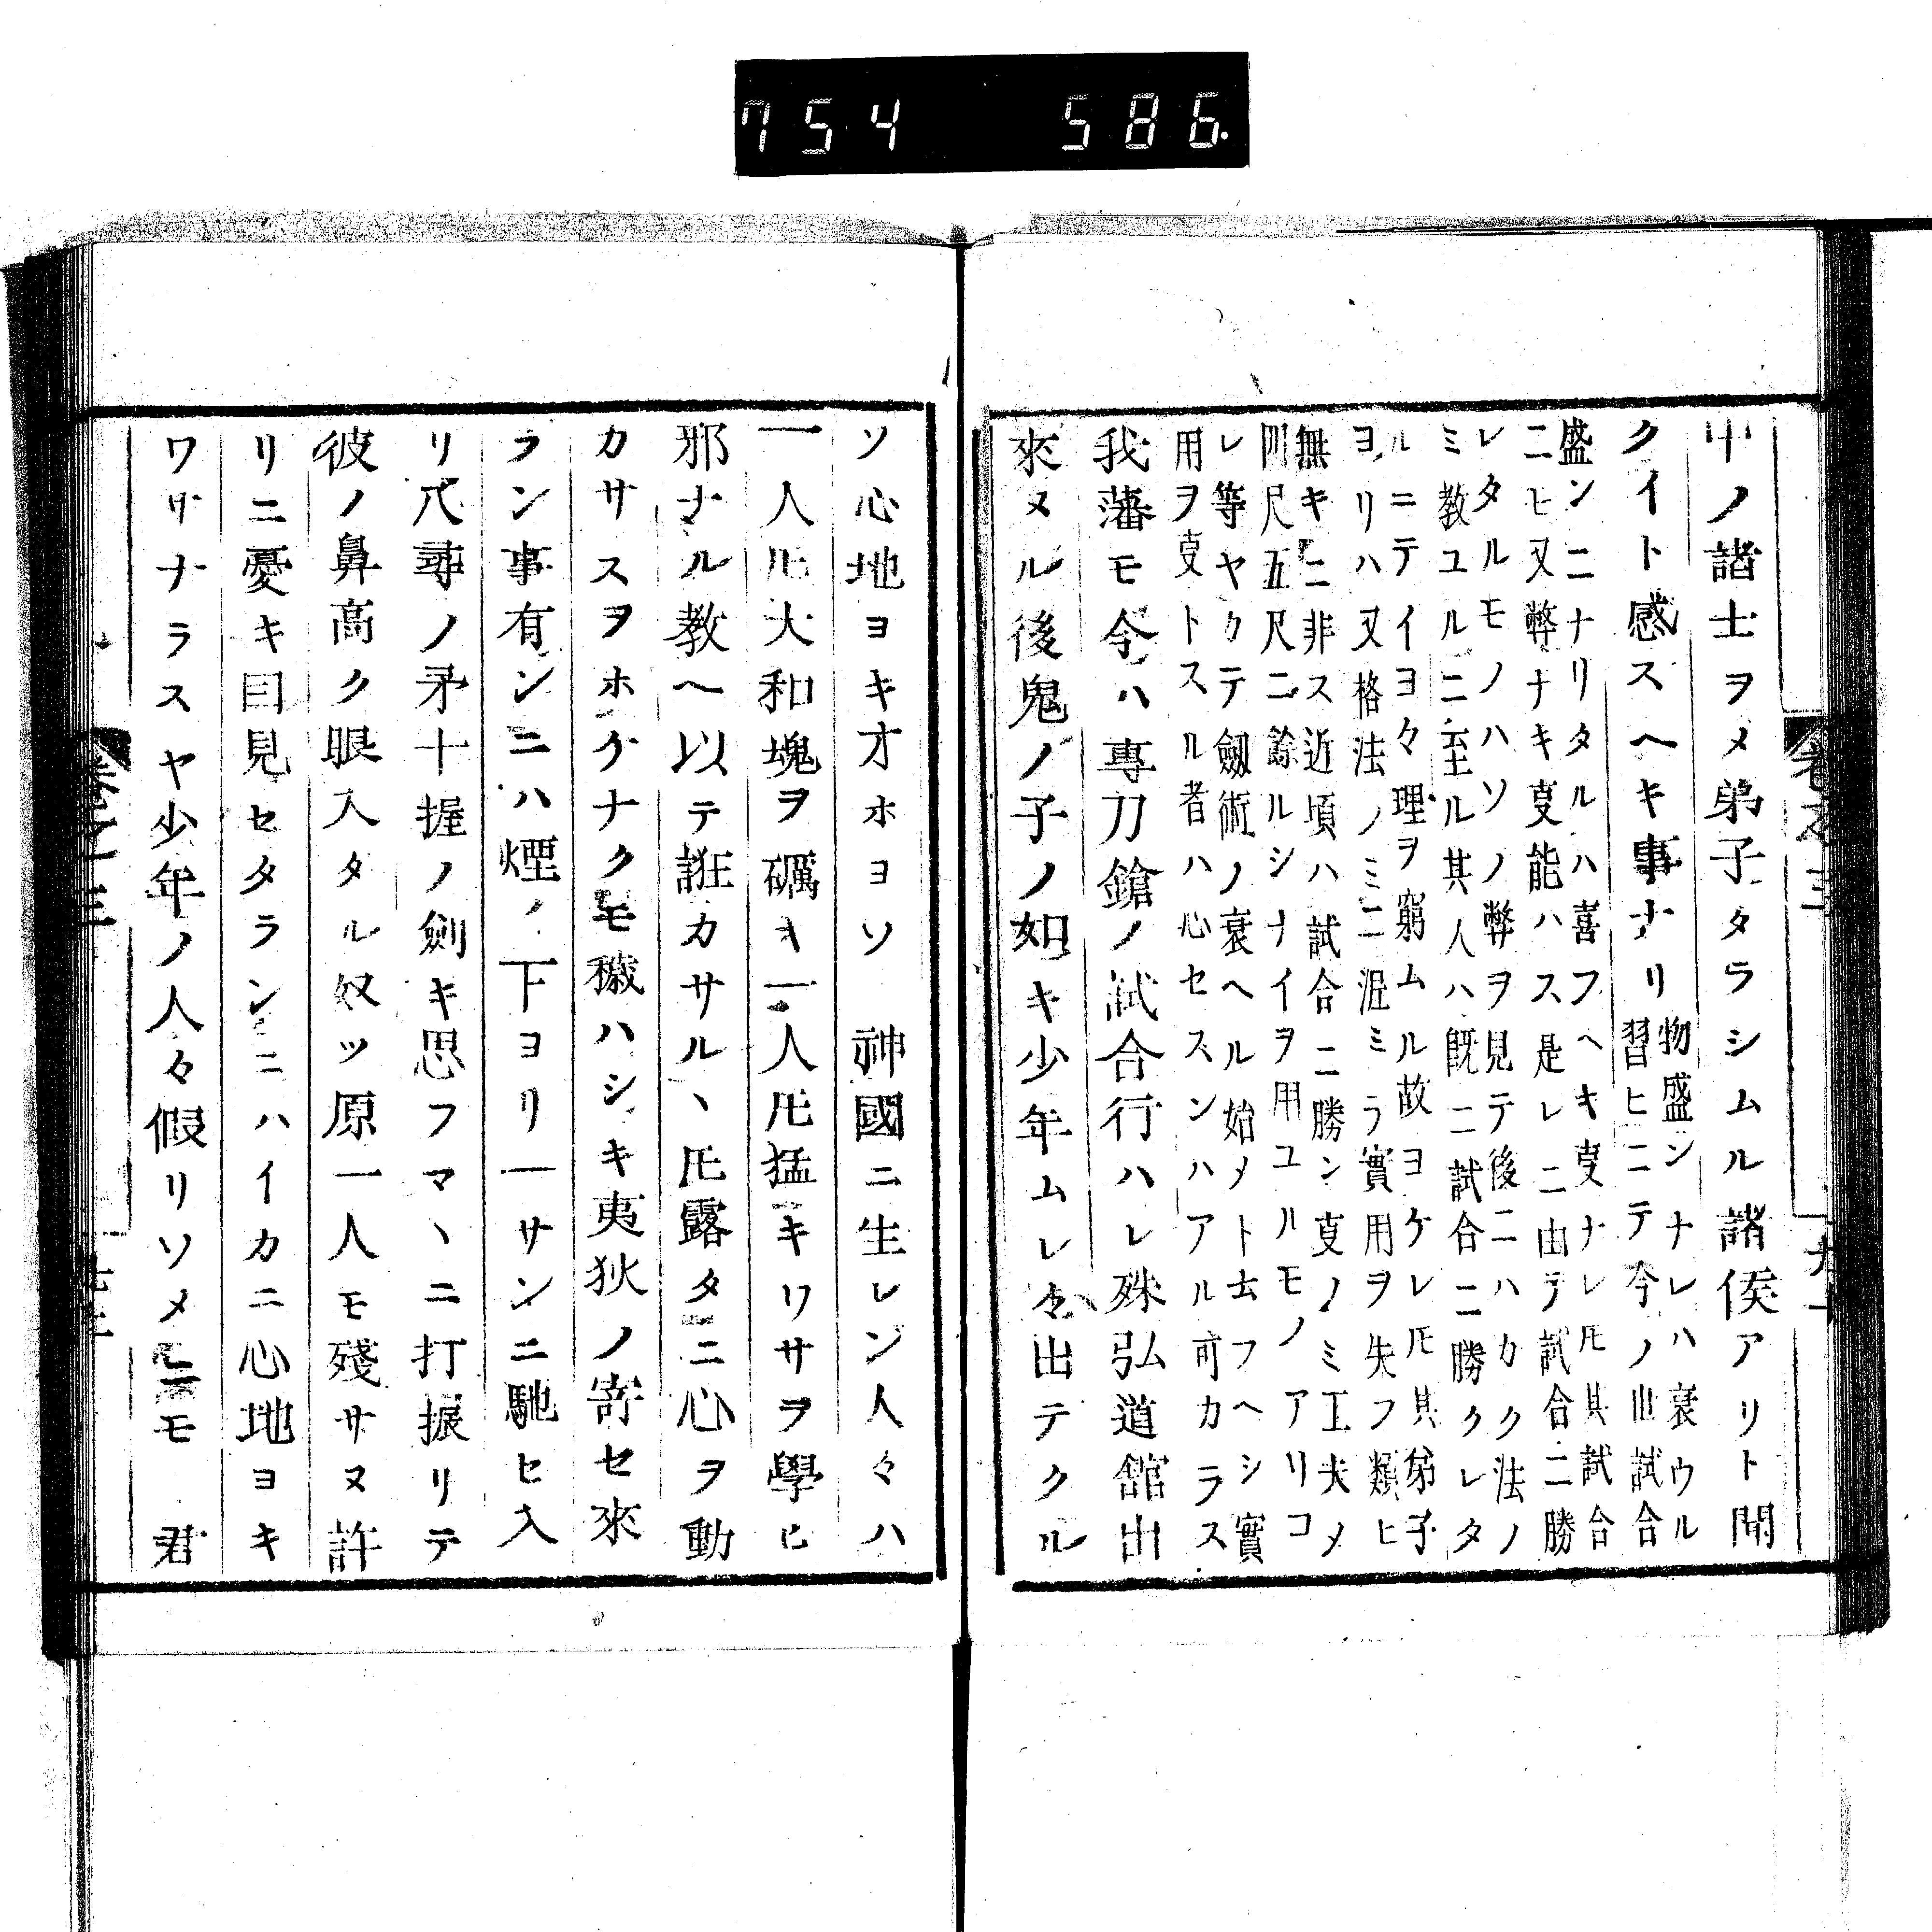 754 586
中ノ諸士ヲメ弟子タラシムル諸侯アリト聞
クイト感スヘキ事ナリ
物盛ンナレハ衰ウル
習ヒニテ今ノ世試合
盛ンニナリタルハ喜フヘキ叓ナレ𪜈其試合
ニヒ又弊ナキ叓能ハス是レニ由テ試合ニ勝
レタルモノハソノ弊ヲ見テ後ニハカク法ノ
ミ教ユルニ至ル其人ハ既ニ試合ニ勝クレタ
ルニテイヨ々理ヲ窮ムル故ヨケレ𪜈其弟子
ヨリハ又格法ノミニ泥ミラ實用ヲ失フ類ヒ
無キニ非ス近頃ハ試合ニ勝ン叓ノミ工夫メ
四尺五尺ニ餘ルシナイヲ用ユルモノアリコ
レ等ヤカテ劔術ノ衰ヘル始メト去フヘシ實
用ヲ叓トスル者ハ心セスンハアル可カラス
我藩モ今ハ專刀鎗ノ試合行ハレ殊弘道舘出
來ヌル後鬼ノ子ノ如キ少年ムレ々出テクル
ソ心地ヨキオホヨソ 神國ニ生レン人々ハ
一人𪜈大和塊ヲ礪キ一人𪜈猛キワサヲ學ヒ
邪ナル教ヘ以テ誑カサルヽ𪜈露タニ心ヲ動
カサスヲホケナクモ穢ハシキ夷狄ノ寄セ來
ラン事有ンニハ煙ノ下ヨリ一サンニ馳ヒ入
リ八尋ノ矛十握ノ劍キ思フマヽニ打振リテ
彼ノ鼻高ク眼入タル奴ツ原一人モ殘サヌ許
リニ憂キ目見セタランニハイカニ心地ヨキ
ワサナラスヤ少年ノ人々假リソメニモ 君